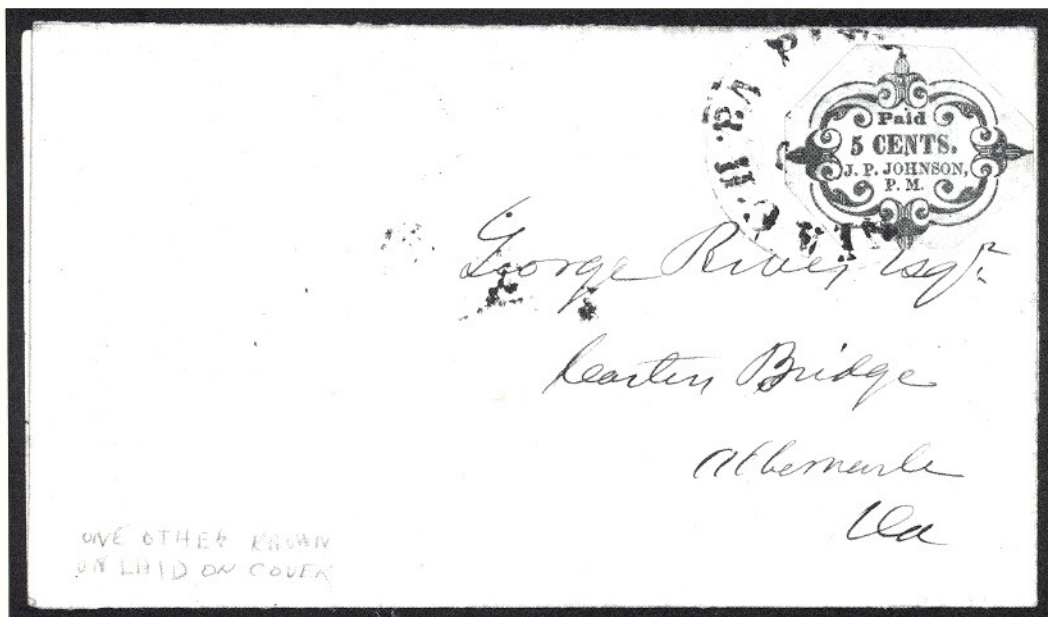 Paid
5 CENTS.
J. P. JOHNSON,
P. M.
C. H. Va
George Rives, Esqr.
Carters Bridge
Albemarle
Va
ONE OTHER KNOWN
ON LAID ON COVER